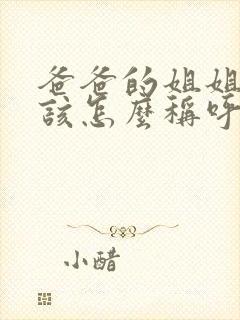 爸爸的姐姐
該怎麼稱呼
小醋